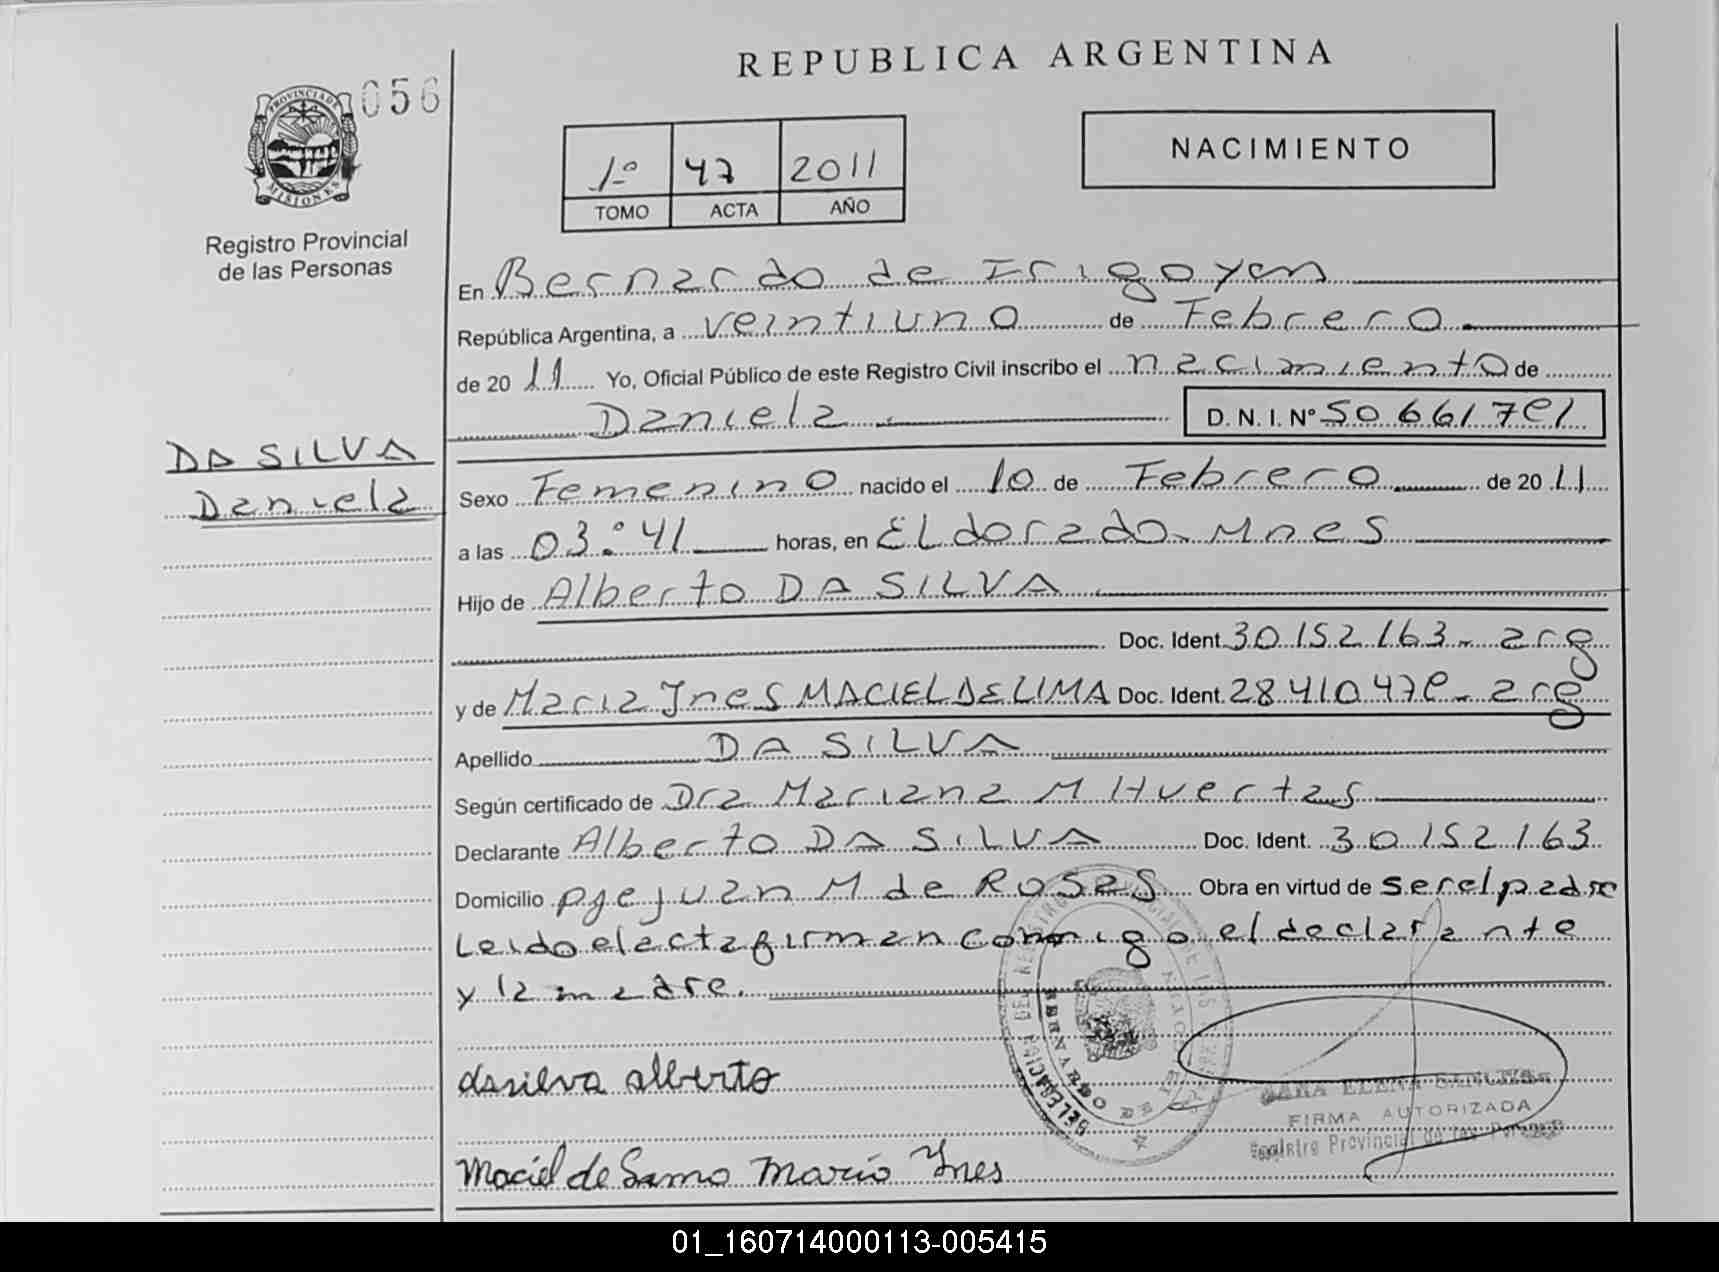 REPUBLICA ARGENTINA
056
PROVINCIA DE MISIONES
Registro Provincial
de las Personas
1º 47 2011
TOMO ACTA AÑO
NACIMIENTO
En Bernardo de Irigoyen
República Argentina, a veintiuno de Febrero
de 2011 Yo, Oficial Público de este Registro Civil inscribo el nacimiento de
Daniela D. N. I. Nº
DA SILVA
Daniela
Sexo Femenino nacido el 10 de Febrero de 2011
a las 03:41 horas, en Eldorado. Mnes
Hijo de Alberto DA SILVA
Doc. Ident. 30.152.163- arg
y de Maria Ines MACIEL DE LIMA Doc. Ident. arg
Apellido DA SILVA
Según certificado de Dra Mariana M Huertas
Declarante Alberto DA SILVA Doc. Ident. 30.152.163
Domicilio pje Juan M de Rosas Obra en virtud de ser el padre
Leido el acta firman conmigo el declarante
y la madre.
dasilva alberto
FIRMA AUTORIZADA
Registro Provincial de las Personas
Maciel de
01_160714000113-005415